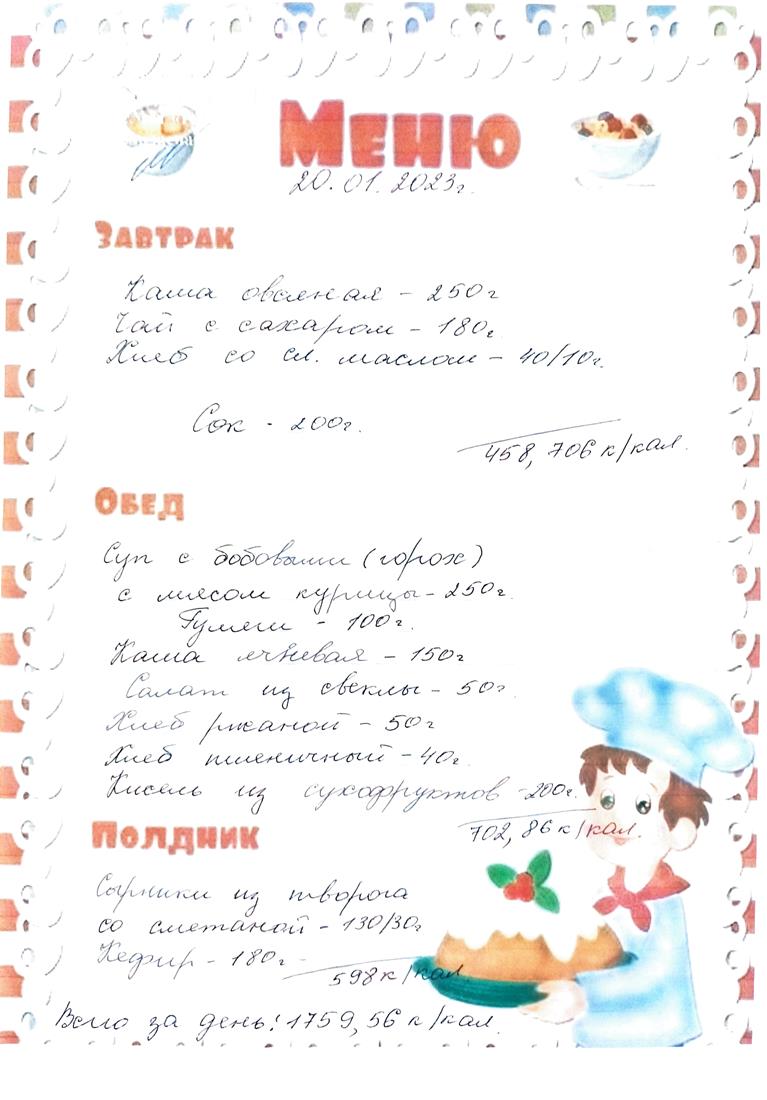 Меню
20.01.2023г.
Завтрак
Каша овсяная - 250г
Чай с сахаром - 180г
Хлеб со сл. маслом - 40/10г.
Сок - 200г.
458,706 к/кал.
Обед
Суп с бобовыми (горох)
с мясом курицы - 250г.
Гуляш - 100г.
Каша ячневая - 150г
Салат из свеклы - 50г.
Хлеб ржаной - 50г
Хлеб пшеничный - 40г.
Кисель из сухофруктов - 200г.
702,86 к/кал.
Полдник
Сырники из творога
со сметаной - 130/30г
Кефир - 180г -
598 к/кал
Всего за день: 1759,56 к/кал.